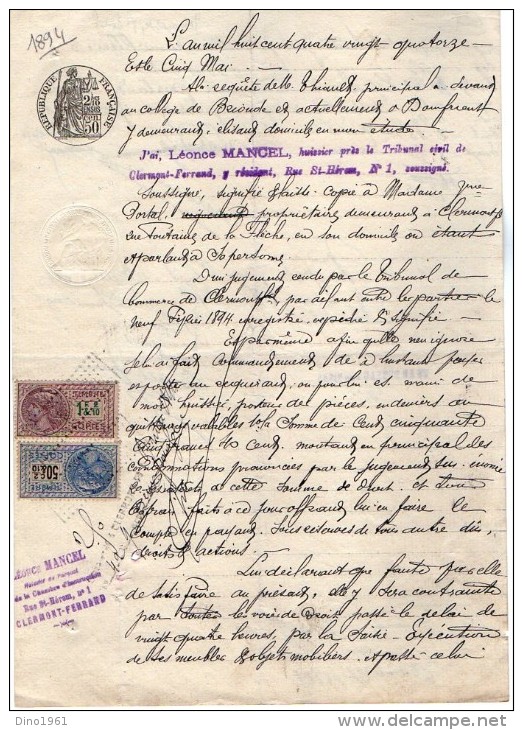 1894
L'an mil huit cent quatre vingt quatorze
Et le Cinq Mai
A la requête de M. Thierret, principal, ci-devant
au collège de Brioude et actuellement à Domfront
y demeurant, élisant domicile en mon étude
RÉPUBLIQUE FRANÇAISE
J'ai, Léonce MANCEL, huissier près le Tribunal civil de
Clermont-Ferrand, y résidant, Rue St-Hérem, N° 1, soussigné.
Soussigné, signifié & laissé Copie à Madame Vve
Portal, propriétaire demeurant à Clermont-Fd
rue Fontaine de la Flèche, en son domicile où étant
et parlant à sa personne
D'un jugement rendu par le Tribunal de
Commerce de Clermont-Fd, par défaut entre les parties le
neuf Février 1894 enregistré, expédié & signifié
Et par même afin qu'elle n'en ignore
je lui ai fait Commandement de à l'instant payer
au requérant, ou pour lui es mains de
moi huissier porteur de pièces, en deniers ou
quittances valables 1° la Somme de Cent Cinquante
Cinq francs 40 Cent. montant en principal des
Condamnations prononcées par le jugement sus-énoncé
les intérêts de cette Somme de Droit et tous
frais faits à ce jour offrant lui en faire le
Compte en payant. Sous réserves de tous autres dûs,
droits & actions.
Lui déclarant que faute par elle
de satisfaire au présent, elle y sera contrainte
par toutes les voies de Droit passé le délai de
vingt quatre heures, par la Saisie-Exécution
de ses meubles & objets mobiliers. Et passé celui
COPIES
LÉONCE MANCEL
Huissier au Parquet
de la Chambre d'Instruction
Rue St-Hérem, n° 1
CLERMONT-FERRAND
Dino1961
delcampe.net